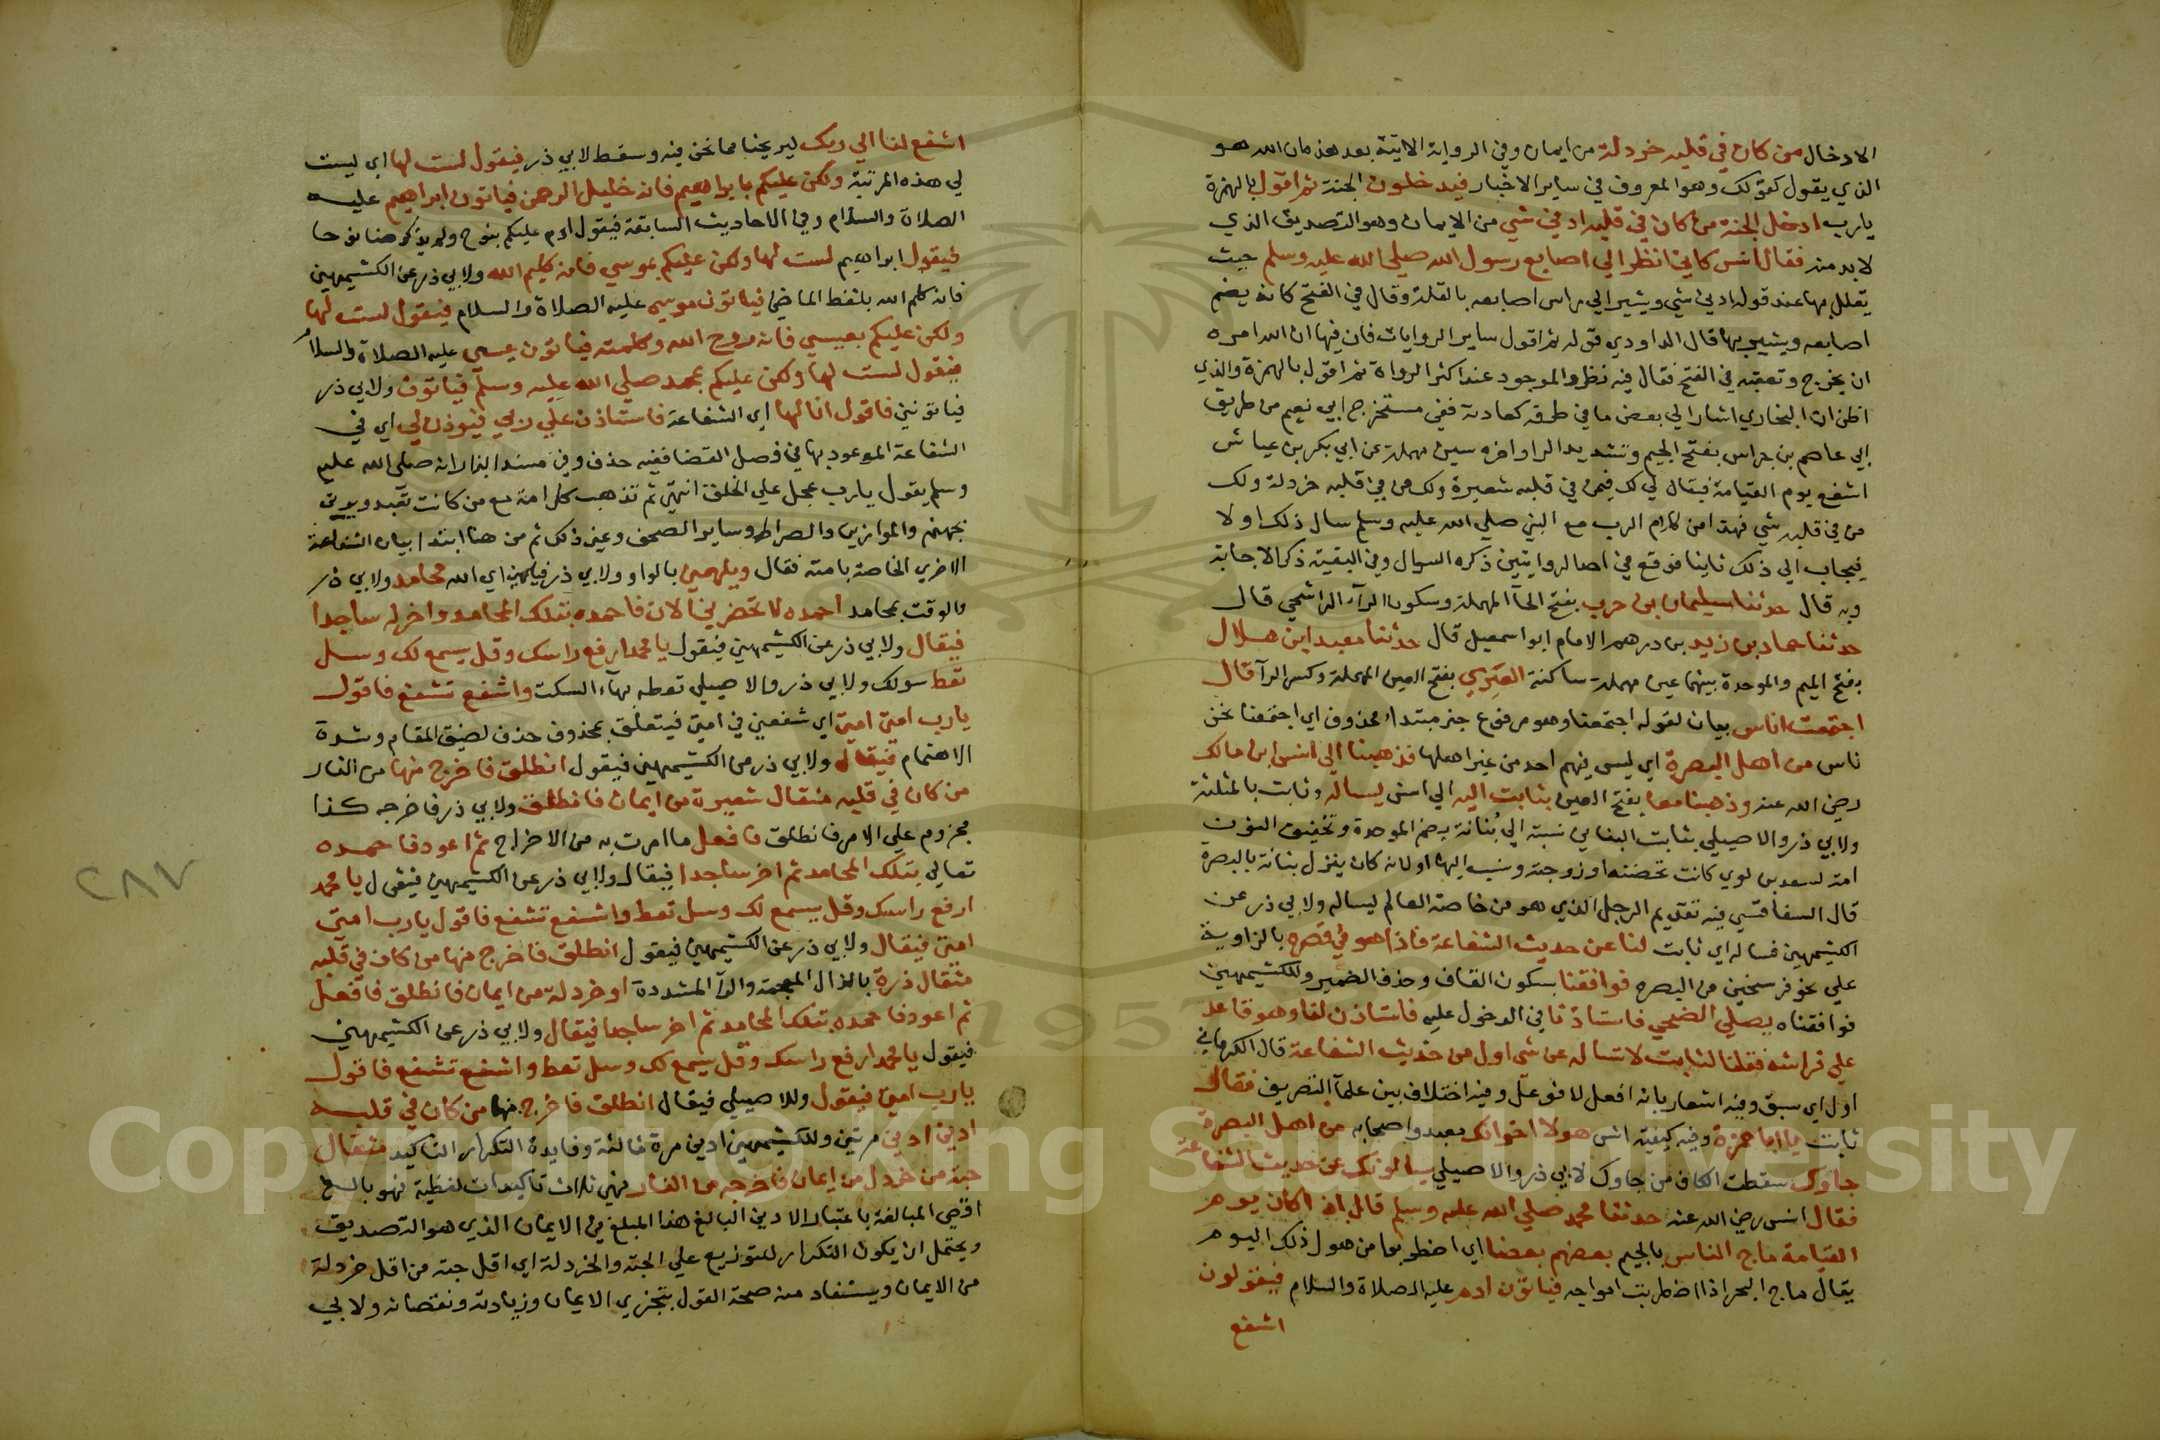 الادخال من كان في قلبه خردلة من ايمان وفي الرواية الاتية بعد هذه ان الله هو
الذي يقول كقولك وهو المعروف في ساير الاخبار فيدخلون الجنة ثم اقول بالهمزة
يارب ادخل الجنة من كان في قلبه ادني شي من الايمان وهو التصديق الذي
لابد منه فقال انس كاني انظر الي اصابع رسول الله صلي الله عليه وسلم حيث
يقلل بها عند قوله ادني شي ويشير الي راس اصابعه بالقلة وقال في الفتح كانه يضم
اصابعه ويشير بها قال الداودي قوله ثم اقول ساير الروايات فان فيها ان الله امره
ان يخرج وتعقبه في الفتح فقال فيه نظر والموجود عند اكثر الرواة ثم اقول بالهمزة والذي
اظن ان البخاري اشار الي بعض ما في طرقه كعادته ففي مستخرج ابي نعيم من طريق
ابي عاصم بن جراس بفتح الجيم وتشديد الرا واخره سين مهملة عن ابي بكر بن عياش
اشفع يوم القيامة فيقال لي لك فمن في قلبه شعيرة ولك من في قلبه خردلة ولك
من في قلبه شي فهذا من كلام الرب مع النبي صلي الله عليه وسلم سال ذلك اولا
فيجاب الي ذلك ثانيا فوقع في احد الروايتين ذكره السوال وفي البقية ذكر الاجابة
وبه قال حدثنا سليمان بن حرب بفتح الحآ المهملة وسكون الرآ الواشحي قال
حدثنا حماد بن زيد بن درهم الامام ابو اسمعيل قال حدثنا معبد ابن هلال
بفتح الميم والموحدة بينهما عين مهملة ساكنة العنزي بفتح العين المهملة وكسر الرا قال
اجتمعت اناس بيان لقوله اجتمعنا وهو مرفوع خبر مبتداء محذوف اي اجتمعنا نحن
ناس من اهل البصرة اي ليس فيهم احد من غير اهلها فذهبنا الي انس ابن مالك
رضي الله عنه وذهبنا معنا بفتح العين بثابت اليه الي انس يساله وثابت بالمثلثة
ولابي ذر والاصيلي بثابت البناني نسبة الي بُنانة بضم الموحدة وتخفيف النون
امة لسعد بن لوي كانت تحضنه او زوجته ونسب اليها او لانه كان ينزل بنانة بالبصرة
قال السفاقسي فيه تقديم الرجل الذي هو من خاصة العالم ليساله ولابي ذر عن
الكشميهين فساله اي ثابت لنا عن حديث الشفاعة فاذا هو في قصره بالزاوية
علي نحو فرسخين من البصره فوافقنا بسكون القاف وحذف الضمير وللكشميهين
فوافقناه يصلي الضحي فاستاذنا في الدخول عليه فاستاذن لنا وهو قاعد
علي فراشه فقلنا لثابت لا تساله عن شي اول من حديث الشفاعة قال الكرماني
اول اي سبق وفيه اشعار بانه افعل لا فوعل وفيه اختلاف بين علمآ التصريف فقال
ثابت يا ابا حمزة وفيه كنية انس هولا اخوانك معبد واصحابه من اهل البصرة
جاوك سقطت الكاف من جاوك لابي ذر والاصيلي يسالونك عن حديث الشفاعة
فقال انس رضي الله عنه حدثنا محمد صلي الله عليه وسلم قال اذا كان يوم
القيامة ماج الناس بالجيم بعضهم بعضا اي اضطربوا من هول ذلك اليوم
يقال ماج البحر اذا اضطربت امواجه فياتون ادم عليه الصلاة والسلام فيقولون
اشفع
اشفع لنا الي ربك ليريحنا مما نحن فيه وسقط لابي ذر فيقول لست لها اي ليست
لي هذه المرتبة ولكن عليكم بابراهيم فانه خليل الرحمن فياتون ابراهيم عليه
الصلاة والسلام وفي الاحاديث السابقة فيقول ادم عليكم بنوح ولم يذكر هنا نوحا
فيقول ابراهيم لست لها ولكن عليكم بموسي فانه كليم الله ولابي ذر عن الكشميهين
فانه كلم الله بلفظ الماضي فياتون موسي عليه الصلاة والسلام فيقول لست لها
ولكن عليكم بعيسي فانه روح الله وكلمته فياتون عيسي عليه الصلاة والسلام
فيقول لست لها ولكن عليكم بمحمد صلي الله عليه وسلم فياتون ولابي ذر
فياتونني فاقول انا لها اي الشفاعة فاستاذن علي ربي فيوذن لي اي في
الشفاعة الموعود بها في فصل القضا ففيه حذف وفي مسند البزار انه صلي الله عليه
وسلم يقول يارب عجل علي الخلق انتهي ثم تذهب كل امة مع من كانت تعبد ويوتي
بجهنم والموازين والصراط وساير الصحف وغير ذلك ثم من هنا ابتدا بيان الشفاعة
الاخري الخاصة بامته فقال ويلهمني بالواو ولابي ذر فيلهمني اي الله محامد ولابي ذر
والوقت بمحامد احمده لا تحضرني الان فاحمده بتلك المحامد واخر له ساجدا
فيقال ولابي ذر عن الكشميهين فيقول يا محمد ارفع راسك وقل يسمع لك وسل
تعط سولك ولابي ذر والاصيلي تعطه بهآء السكت واشفع تشفع فاقول
يارب امتي امتي اي شفعني في امتي فيتعلق بمحذوف حذف لضيق المقام وشدة
الاهتمام فيقال ولابي ذر عن الكشميهين فيقول انطلق فاخرج منها من النار
من كان في قلبه مثقال شعيرة من ايمان فانطلق ولابي ذر فاخرجه كذا
مجزوم علي الامر فانطلق فافعل ما امرت به من الاخراج ثم اعود فاحمده
تعالي بتلك المحامد ثم اخر ساجدا فيقال ولابي ذر عن الكشميهين فيقول يا محمد
ارفع راسك وقل يسمع لك وسل تعط واشفع تشفع فاقول يارب امتي
امتي فيقال ولابي ذر عن الكشميهين فيقول انطلق فاخرج منها من كان في قلبه
مثقال ذرة بالذال المعجمة والرآ المشددة او خردلة من ايمان فانطلق فافعل
ثم اعود فاحمده بتلك المحامد ثم اخر ساجدا فيقال ولابي ذر عن الكشميهين
فيقول يا محمد ارفع راسك وقل يسمع لك وسل تعط واشفع تشفع فاقول
يارب امتي فيقول وللاصيلي فيقال انطلق فاخرج منها من كان في قلبه
ادني ادني مرتين وللكشميهين ادني مرة ثالثة وفايدة التكرار التاكيد مثقال
حبة من خردل من ايمان فاخرجه من النار فهي ثلاث تاكيدات لفظية فهو بالغ
اقصي المبالغة باعتبار الادني البالغ هذا المبلغ في الايمان الذي هو التصديق
ويحتمل ان يكون التكرار للتوزيع علي الحبة والخردلة اي اقل حبة من اقل خردلة
من الايمان ويستفاد منه صحة القول بتجزي الايمان وزيادته ونقصانه ولابي
٢٨٧
1957
Copyright © King Saud University